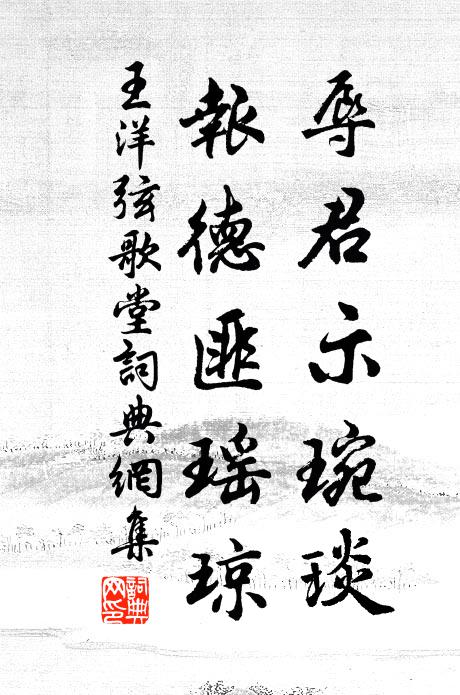 辱君示琬琰
報德匪瑤瓊
王洋弦歌堂詞典網集
詞典网